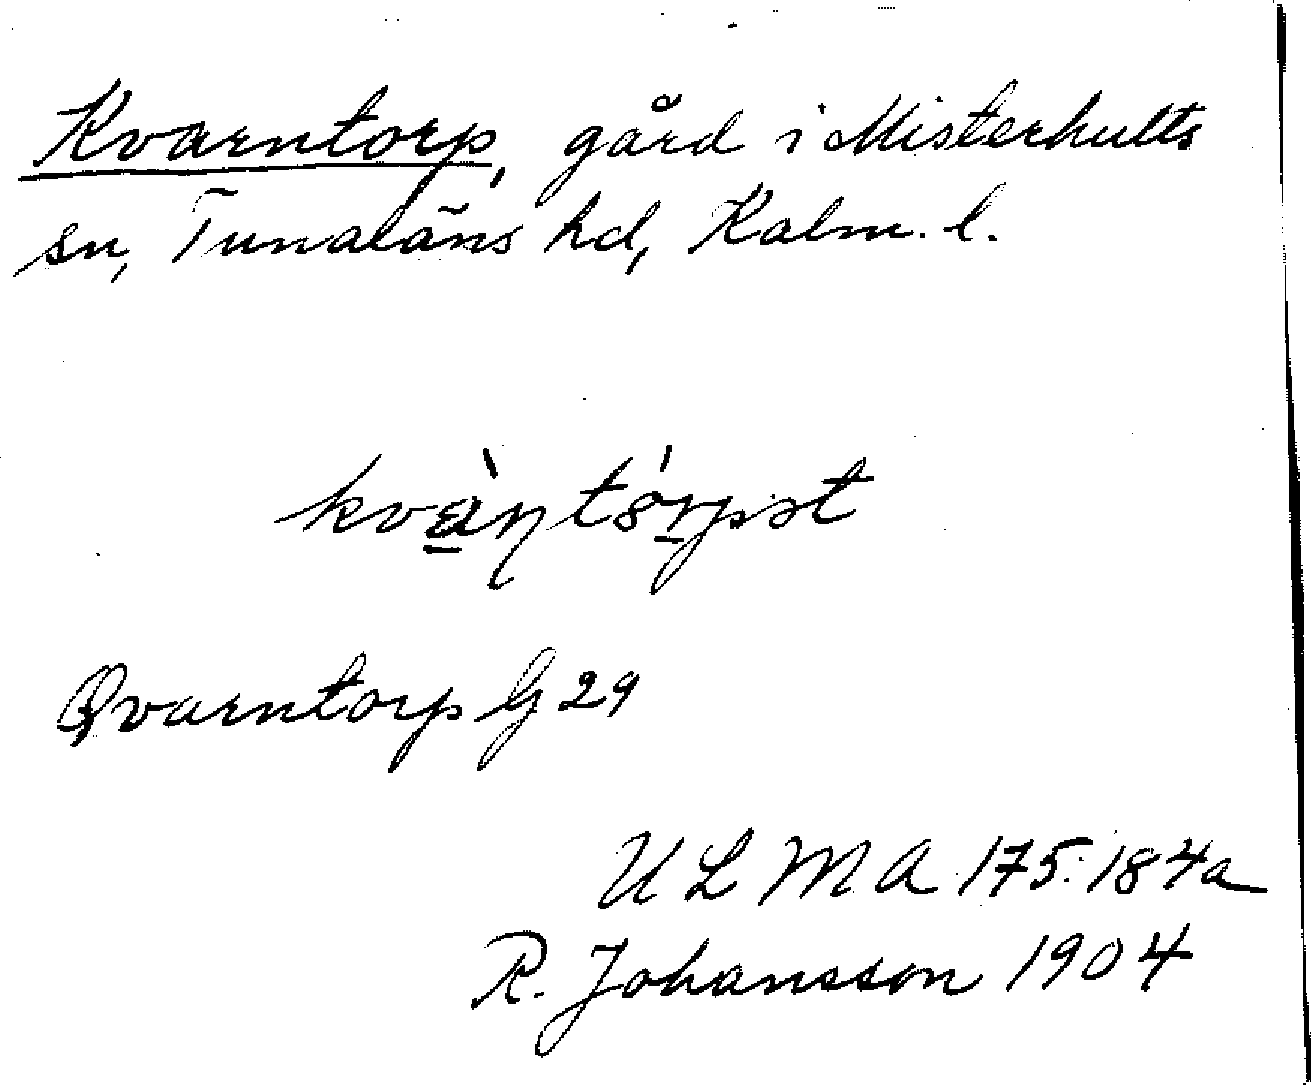 Kvarntorp, gård i Misterhults
sn, Tunaläns hd, Kalm. l.
Qvarntorp G 29
ULMA 175:184a
R. Johansson 1904